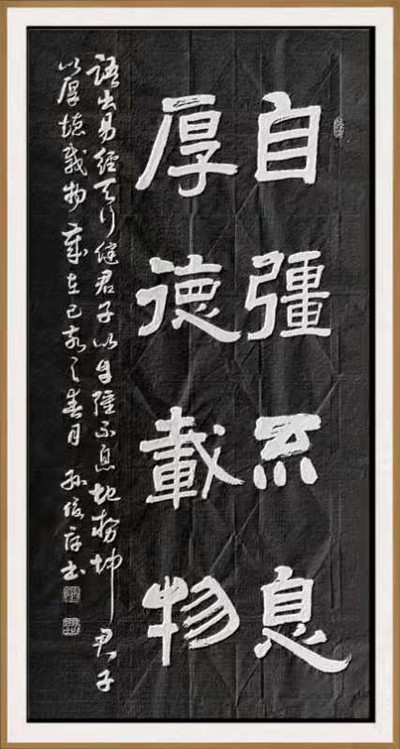 自彊不息
厚德載物
語出易經天行健君子以自彊不息地勢坤君子
以厚德載物 歲在己亥之春月 孫俊書